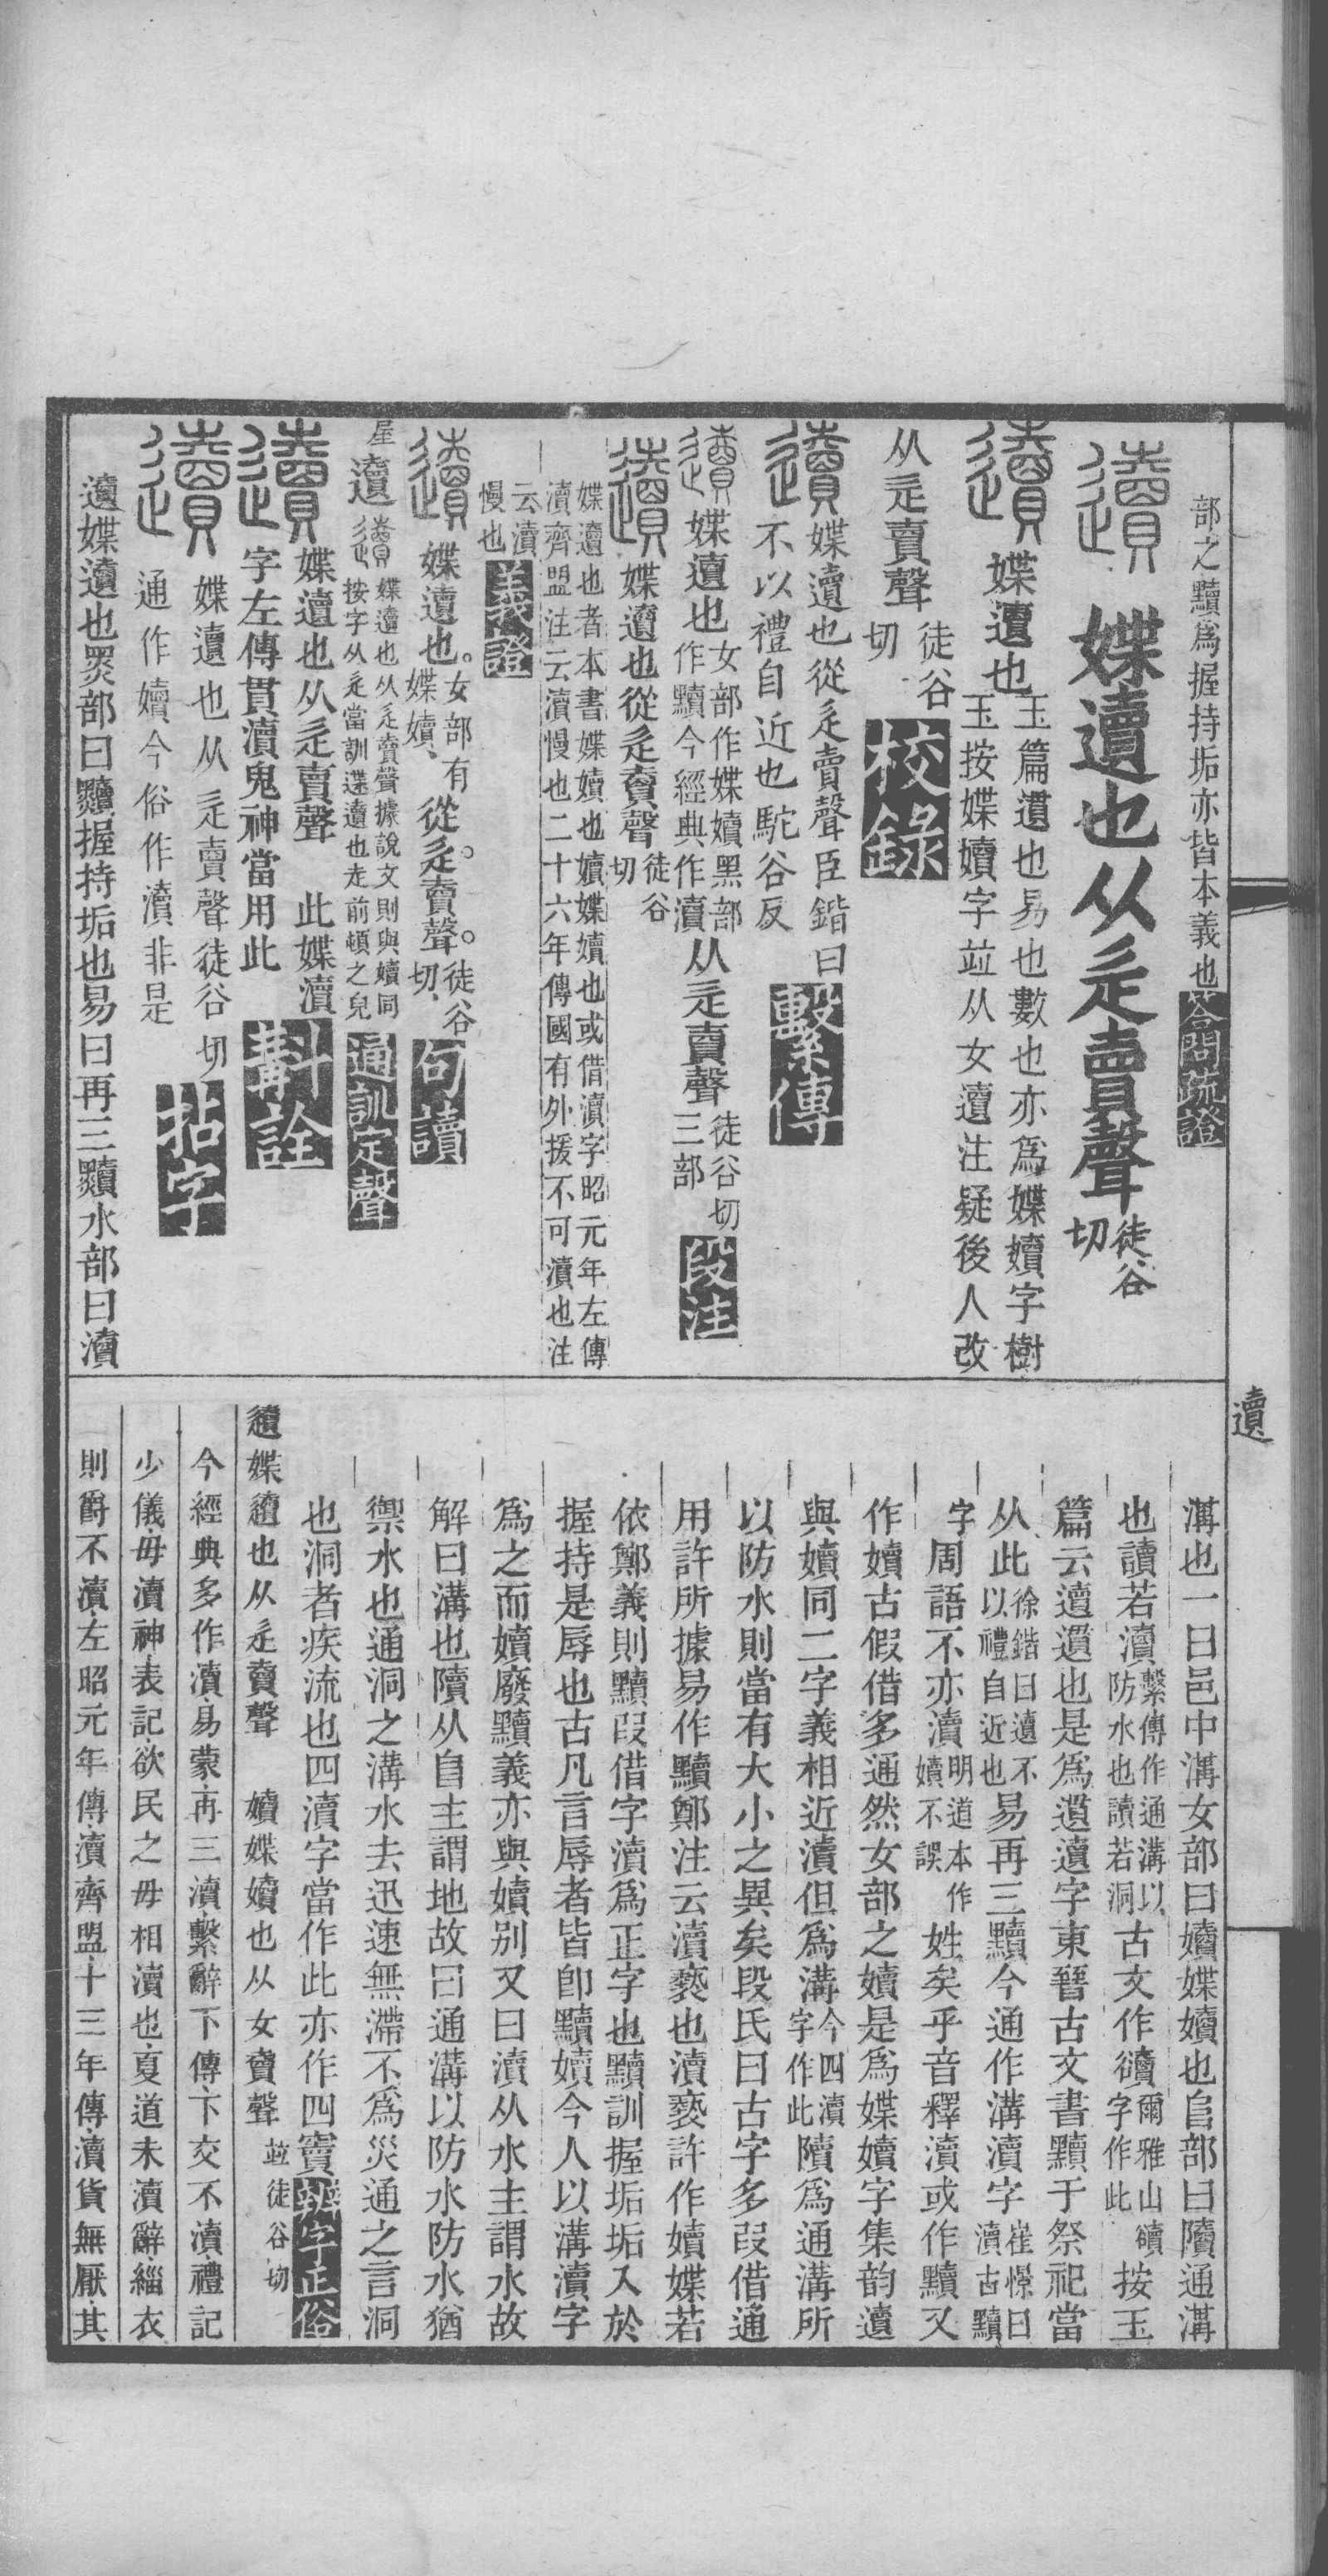 部之黷爲握持垢亦皆本義也答問疏證
媟遺也从辵賣聲徒谷切
媟遺也玉篇遺也易也數也亦爲媟嬻字樹
玉按媟嬻字竝从女遺注疑後人改
从辵賣聲徒谷切校錄
媟遺也從辵賣聲臣鍇曰
不以禮自近也駝谷反繫傳
媟遺也女部作媟嬻黑部作黷今經典作瀆从辵賣聲徒谷切三部段注
媟遺也從辵賣聲徒谷切
媟遺也者本書媟嬻也嬻媟嬻也或借瀆字昭元年左傳
瀆齊盟注云瀆慢也二十六年傳國有外援不可瀆也注
云瀆慢也義證
媟遺也。女部有媟嬻、從辵賣聲。徒谷切、句讀
屋遺媟遺也从辵賣聲據說文則與嬻同
按字从辵當訓遝遺也走前頓之皃通訓定聲
媟遺也从辵賣聲 此媟瀆
字左傳貫瀆鬼神當用此斠詮
媟遺也从辵賣聲徒谷切
通作嬻今俗作瀆非是拈字
遺媟遺也黑部曰黷握持垢也易曰再三黷水部曰瀆
溝也一曰邑中溝女部曰嬻媟嬻也𨸏部曰隫通溝
也讀若瀆繫傳作通溝以防水也讀若洞古文作豄爾雅山豄字作此按玉
篇云遺遝也是爲遝遺字東晉古文書黷于祭祀當
从此徐鍇曰遺不以禮自近也易再三黷今通作溝瀆字崔憬曰瀆古黷
字周語不亦瀆明道本作嬻不誤姓矣乎音釋瀆或作黷又
作嬻古假借多通然女部之嬻是爲媟嬻字集韵遺
與嬻同二字義相近瀆但爲溝今四瀆字作此隫爲通溝所
以防水則當有大小之異矣段氏曰古字多叚借通
用許所據易作黷鄭注云瀆褻也瀆褻許作嬻媟若
依鄭義則黷叚借字瀆爲正字也黷訓握垢垢入於
握持是辱也古凡言辱者皆卽黷嬻今人以溝瀆字
爲之而嬻廢黷義亦與嬻別又曰瀆从水主謂水故
解曰溝也隫从𨸏主謂地故曰通溝以防水防水猶
禦水也通洞之溝水去迅速無滯不爲災通之言洞
也洞者疾流也四瀆字當作此亦作四竇辨字正俗
遺媟遺也从辵賣聲 嬻媟嬻也从女賣聲竝徒谷切
今經典多作瀆易蒙再三瀆繫辭下傳下交不瀆禮記
少儀毋瀆神表記欲民之毋相瀆也夏道未瀆辭緇衣
則爵不瀆左昭元年傳瀆齊盟十三年傳瀆貨無厭其
遺